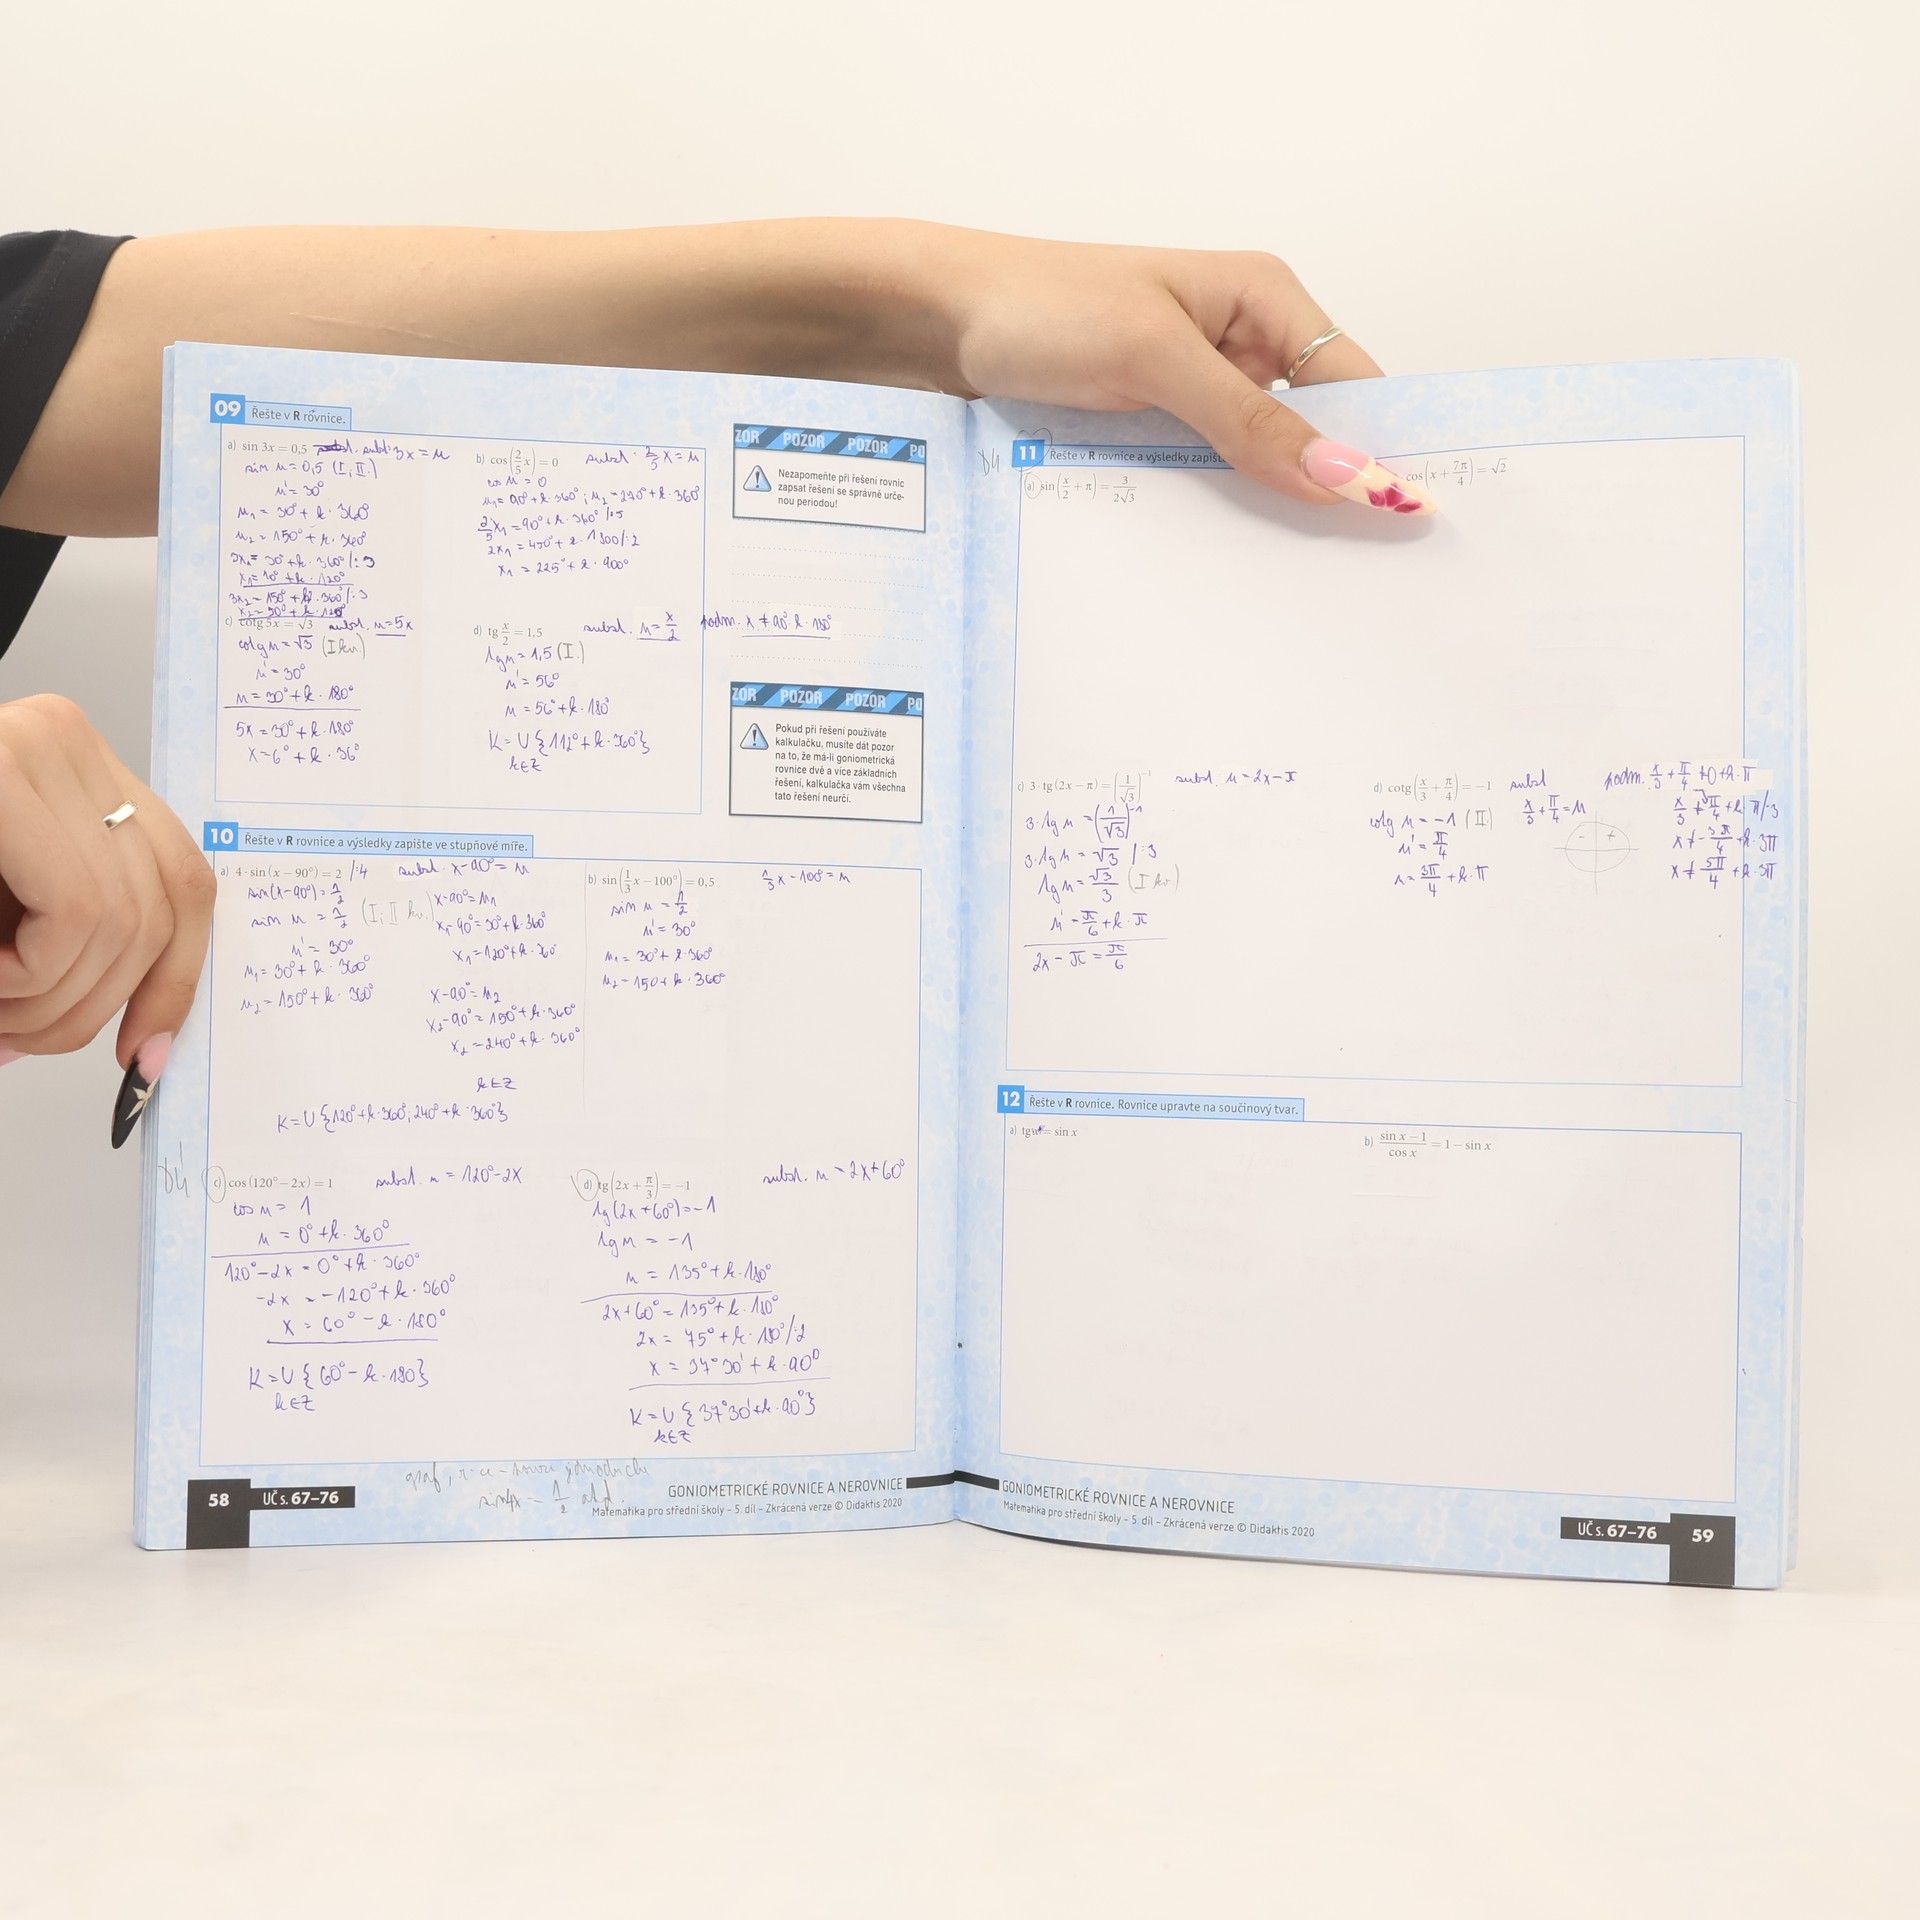 09 Řešte v R rovnice.
a) sin 3x = 0,5 subst. 3x = u
sin u = 0,5 (I, II.)
u' = 30°
u₁ = 30° + k · 360°
u₂ = 150° + k · 360°
3x₁ = 30° + k · 360° /:3
x₁ = 10° + k · 120°
3x₂ = 150° + k · 360° /:3
x₂ = 50° + k · 120°
b) cos(2/5 x) = 0 subst. 2/5 x = u
cos u = 0
u₁ = 90° + k · 360°; u₂ = 270° + k · 360°
2/5 x₁ = 90° + k · 360° /·5
2x₁ = 450° + k · 1800 /:2
x₁ = 225° + k · 900°
c) cotg 5x = √3 subst. u = 5x
cotg u = √3 (I kv.)
u' = 30°
u = 30° + k · 180°
5x = 30° + k · 180°
x = 6° + k · 36°
d) tg x/2 = 1,5 subst. u = x/2 podm. x ≠ 90° k · 180°
tg u = 1,5 (I.)
u' = 56°
u = 56° + k · 180°
K = U {112° + k · 360°}
k∈Z
ZOR POZOR POZOR PO
Nezapomeňte při řešení rovnic
zapsat řešení se správně urče-
nou periodou!
ZOR POZOR POZOR PO
Pokud při řešení používáte
kalkulačku, musíte dát pozor
na to, že má-li goniometrická
rovnice dvě a více základních
řešení, kalkulačka vám všechna
tato řešení neurčí.
10 Řešte v R rovnice a výsledky zapište ve stupňové míře.
a) 4 · sin (x − 90°) = 2 /:4 subst. x − 90° = u
sin(x − 90°) = 1/2
sin u = 1/2 (I, II kv.)
u' = 30°
u₁ = 30° + k · 360°
u₂ = 150° + k · 360°
x − 90° = u₁
x₁ − 90° = 30° + k · 360°
x₁ = 120° + k · 360
x − 90° = u₂
x₂ − 90° = 150° + k · 360°
x₂ = 240° + k · 360°
k∈Z
K = U {120° + k · 360°; 240° + k · 360°}
b) sin(1/3 x − 100°) = 0,5 1/3 x − 100° = u
sin u = 1/2
u' = 30°
u₁ = 30° + k · 360°
u₂ = 150 + k · 360°
DÚ
c) cos (120° − 2x) = 1 subst. u = 120° − 2x
cos u = 1
u = 0° + k · 360°
120° − 2x = 0° + k · 360°
−2x = −120° + k · 360°
x = 60° − k · 180°
K = U {60° − k · 180}
k∈Z
d) tg(2x + π/3) = −1 subst. u = 2x + 60°
tg(2x + 60°) = −1
tg u = −1
u = 135° + k · 180°
2x + 60° = 135° + k · 180°
2x = 75° + k · 180° /:2
x = 37°30' + k · 90°
K = U {37°30' + k · 90°}
k∈Z
58 UČ s. 67–76
GONIOMETRICKÉ ROVNICE A NEROVNICE
Matematika pro střední školy – 5. díl – Zkrácená verze © Didaktis 2020
DÚ
11 Řešte v R rovnice a výsledky
a) sin(x/2 + π) = 3/(2√3)
cos(x + 7π/4) = √2
c) 3 · tg (2x − π) = (1/√3)⁻¹ subst. u = 2x − π
3 · tg u = (1/√3)⁻¹
3 · tg u = √3 /:3
tg u = √3/3 (I kv.)
u' = π/6 + k · π
2x − π = π/6
d) cotg(x/3 + π/4) = −1 subst
x/3 + π/4 = u
cotg u = −1 (II.)
u' = π/4
u = 3π/4 + k · π
− +
podm. x/3 + π/4 ≠ 0 + k · π
x/3 ≠ π/4 + k π /·3
x ≠ −3π/4 + k · 3π
x ≠ 5π/4 + k · 3π
12 Řešte v R rovnice. Rovnice upravte na součinový tvar.
a) tg x = sin x
b) (sin x − 1)/cos x = 1 − sin x
GONIOMETRICKÉ ROVNICE A NEROVNICE
Matematika pro střední školy – 5. díl – Zkrácená verze © Didaktis 2020
UČ s. 67–76 59